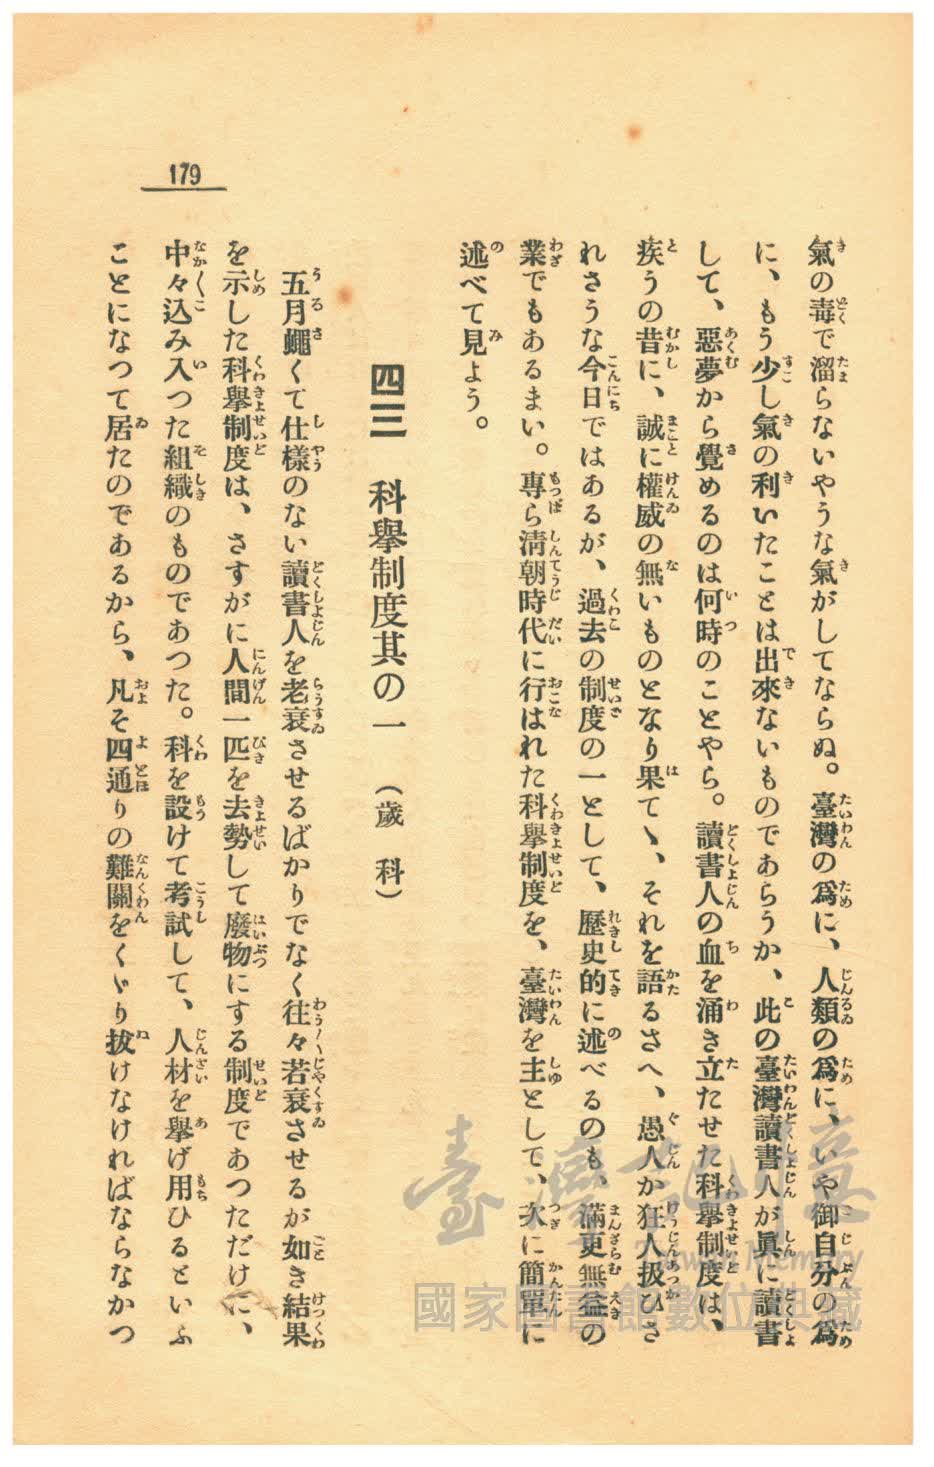 179
氣の毒で溜らないやうな氣がしてならぬ。臺灣の爲に、人類の爲に、いや御自分の爲
に、もう少し氣の利いたことは出來ないものであらうか、此の臺灣讀書人が眞に讀書
して、惡夢から覺めるのは何時のことやら。讀書人の血を涌き立たせた科擧制度は、
疾うの昔に、誠に權威の無いものとなり果てヽ、それを語るさへ、愚人か狂人扱ひさ
れさうな今日ではあるが、過去の制度の一として、歷史的に述べるのも、滿更無益の
業でもあるまい。專ら淸朝時代に行はれた科擧制度を、臺灣を主として、次に簡單に
述べて見よう。
四三 科擧制度其の一 (歲 科)
五月蠅くて仕樣のない讀書人を老衰させるばかりでなく往々若衰させるが如き結果
を示した科擧制度は、さすがに人間一匹を去勢して廢物にする制度であつただけに、
中々込み入つた組織のものであつた。科を設けて考試して、人材を擧げ用ひるといふ
ことになつて居たのであるから、凡そ四通りの難關をくゞり拔けなければならなかつ
臺灣記憶
Taiwan Memory
國家圖書館數位典藏